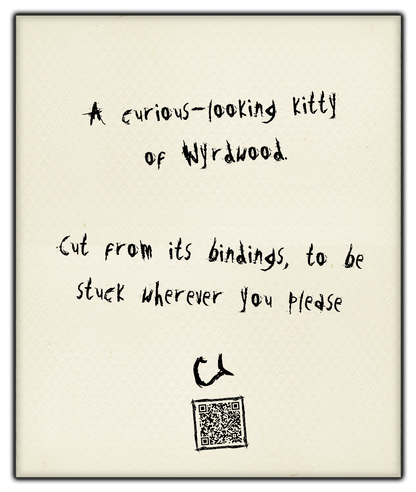 A curious-looking kitty
of Wyrdwood.
Cut from its bindings, to be
stuck wherever you please